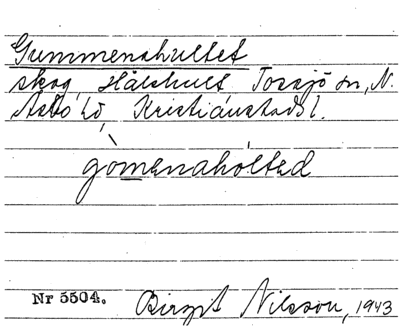 Gummenahultet
skog, Hålehult Tossjö sn, N.
Åsbo hd, Kristianstads l.
gomenahólted
Nr 5504. Birgit Nilsson, 1943